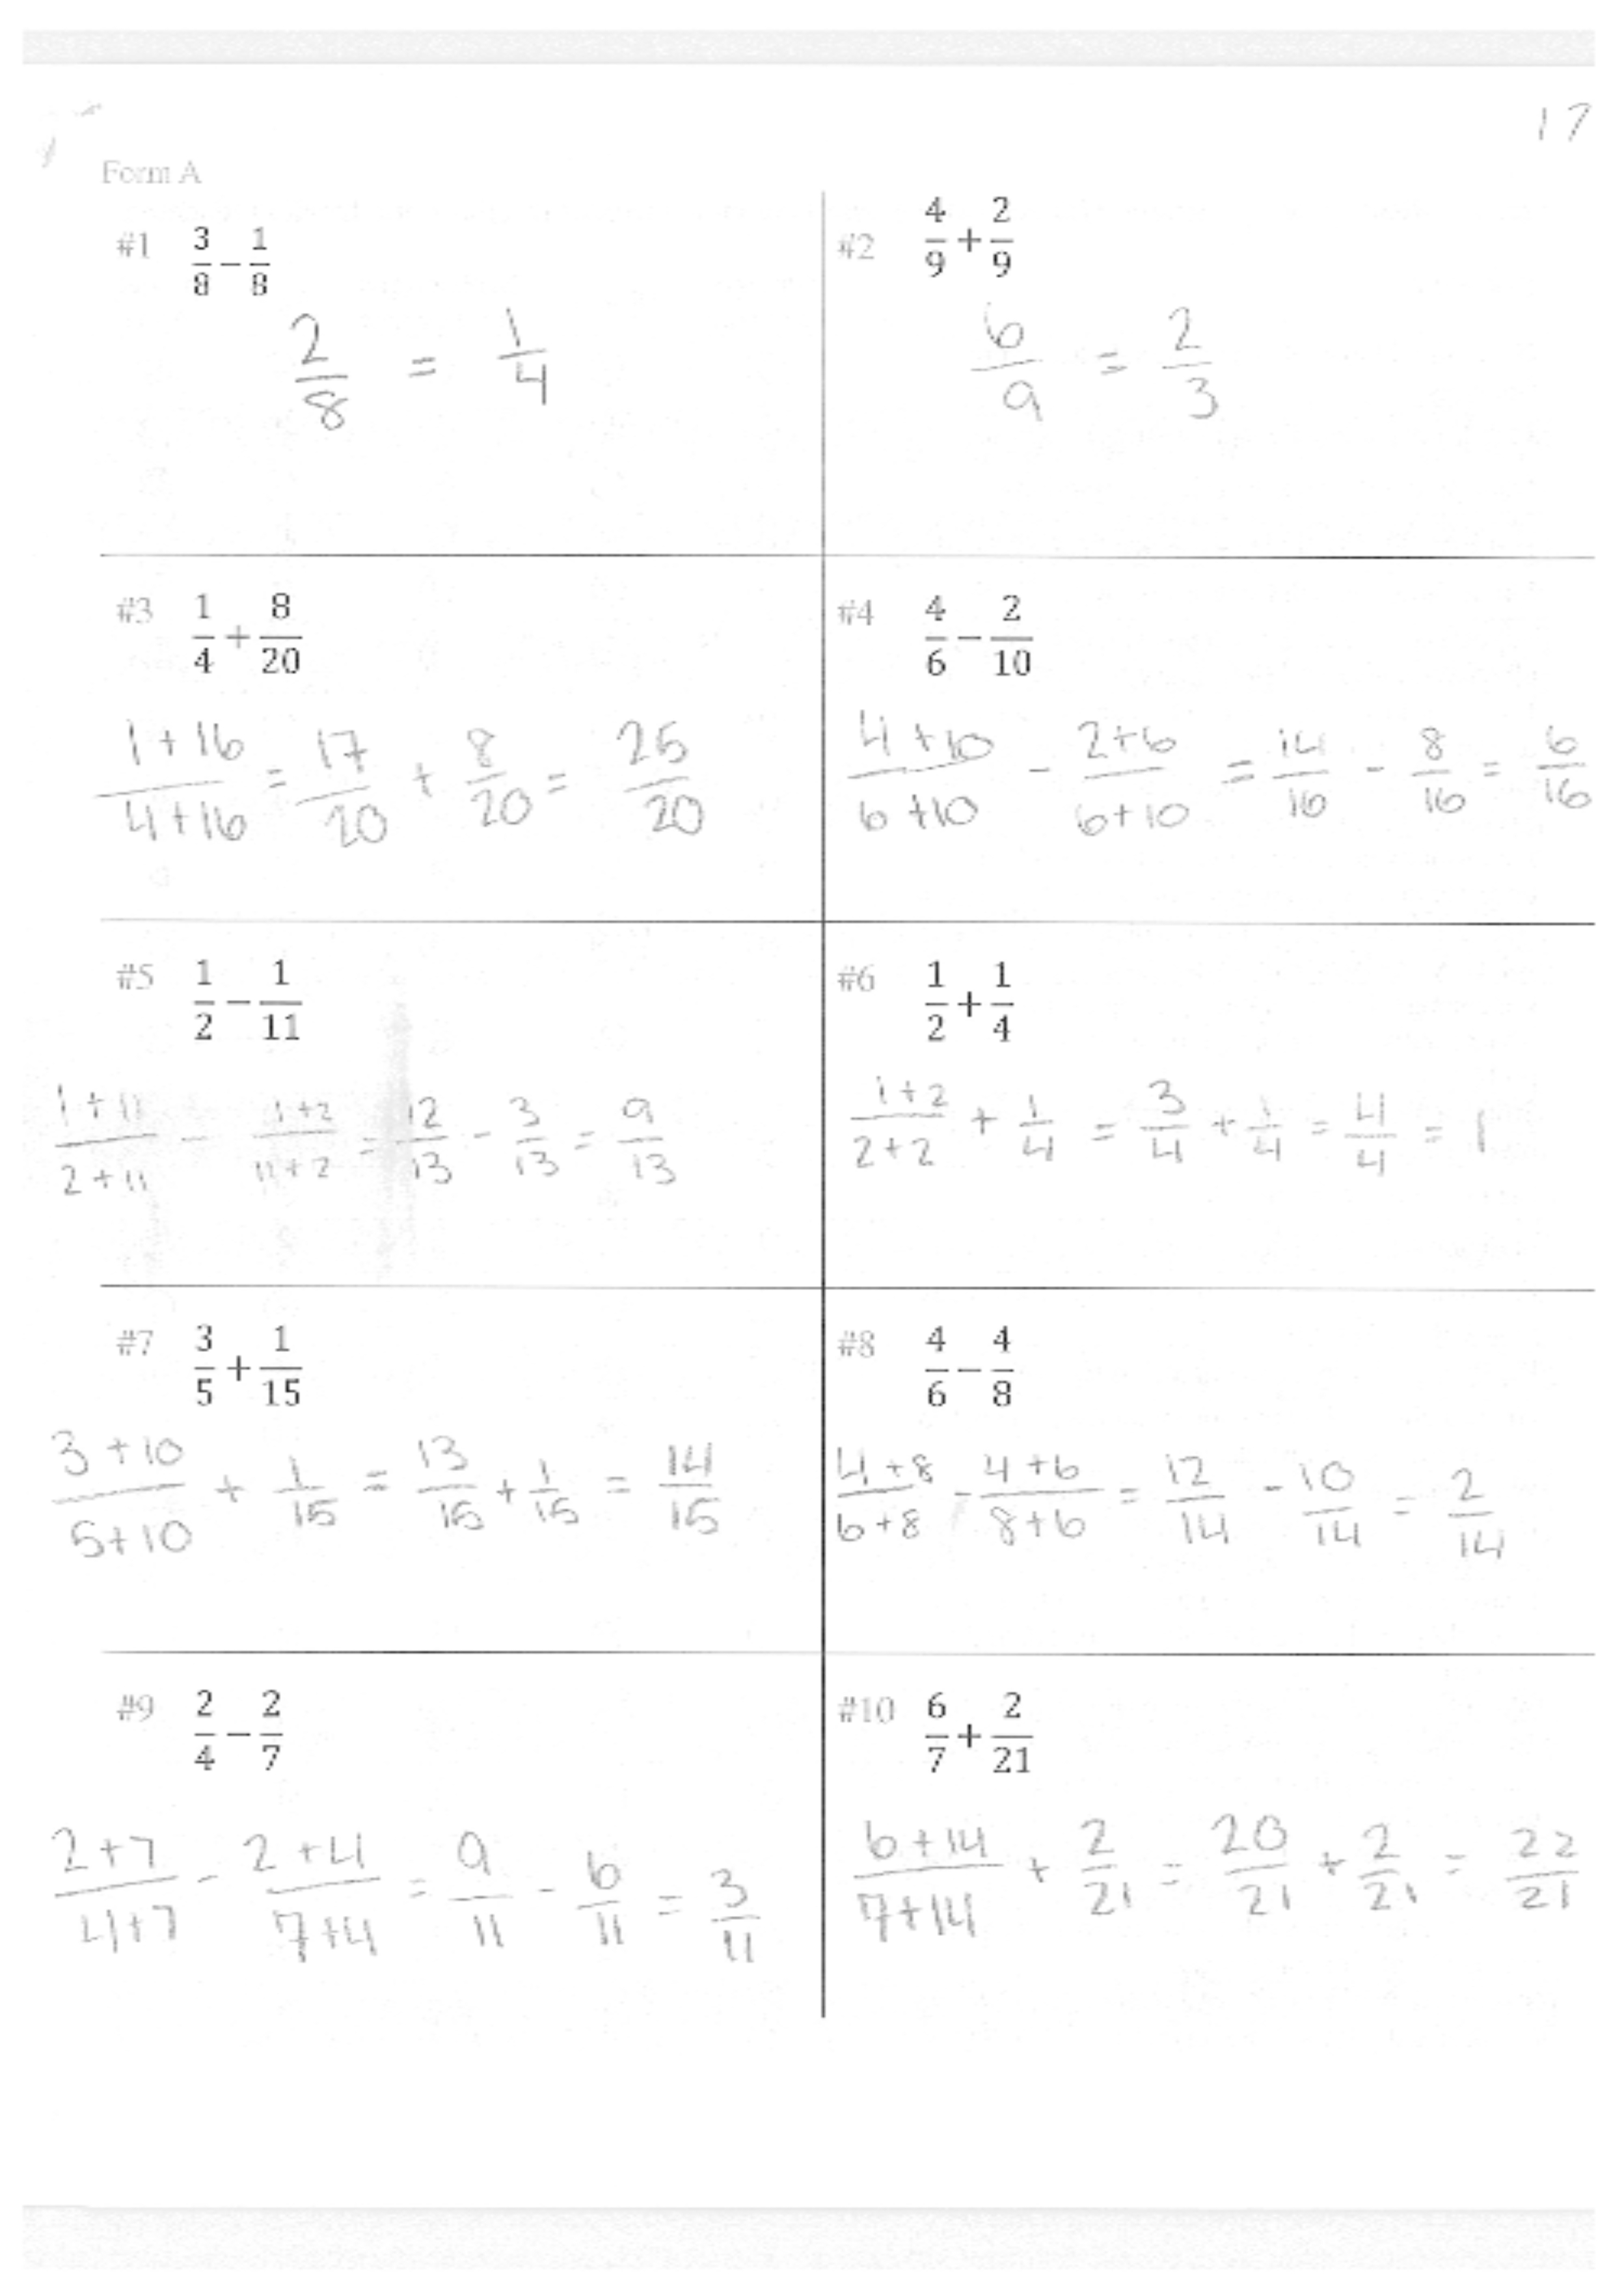 17
Form A
#1 3/8 − 1/8
2/8 = 1/4
#2 4/9 + 2/9
6/9 = 2/3
#3 1/4 + 8/20
1+16/4+16 = 17/20 + 8/20 = 25/20
#4 4/6 − 2/10
4+10/6+10 - 2+6/6+10 = 14/16 - 8/16 = 6/16
#5 1/2 − 1/11
1+11/2+11 - 1+2/11+2 = 12/13 - 3/13 = 9/13
#6 1/2 + 1/4
1+2/2+2 + 1/4 = 3/4 + 1/4 = 4/4 = 1
#7 3/5 + 1/15
3+10/5+10 + 1/15 = 13/15 + 1/15 = 14/15
#8 4/6 − 4/8
4+8/6+8 - 4+6/8+6 = 12/14 - 10/14 = 2/14
#9 2/4 − 2/7
2+7/4+7 - 2+4/7+4 = 9/11 - 6/11 = 3/11
#10 6/7 + 2/21
6+14/7+14 + 2/21 = 20/21 + 2/21 = 22/21